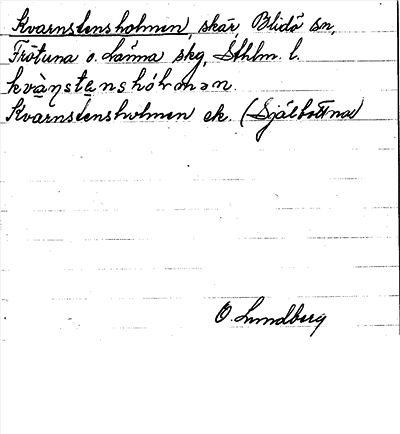 Kvarnstensholmen, skär Blidö sn,
Frötuna o. Länna skg, Sthlm. l.
kvàṇstenshólmən.
Kvarnstensholmen ek. (Själbottna)
O. Lundberg